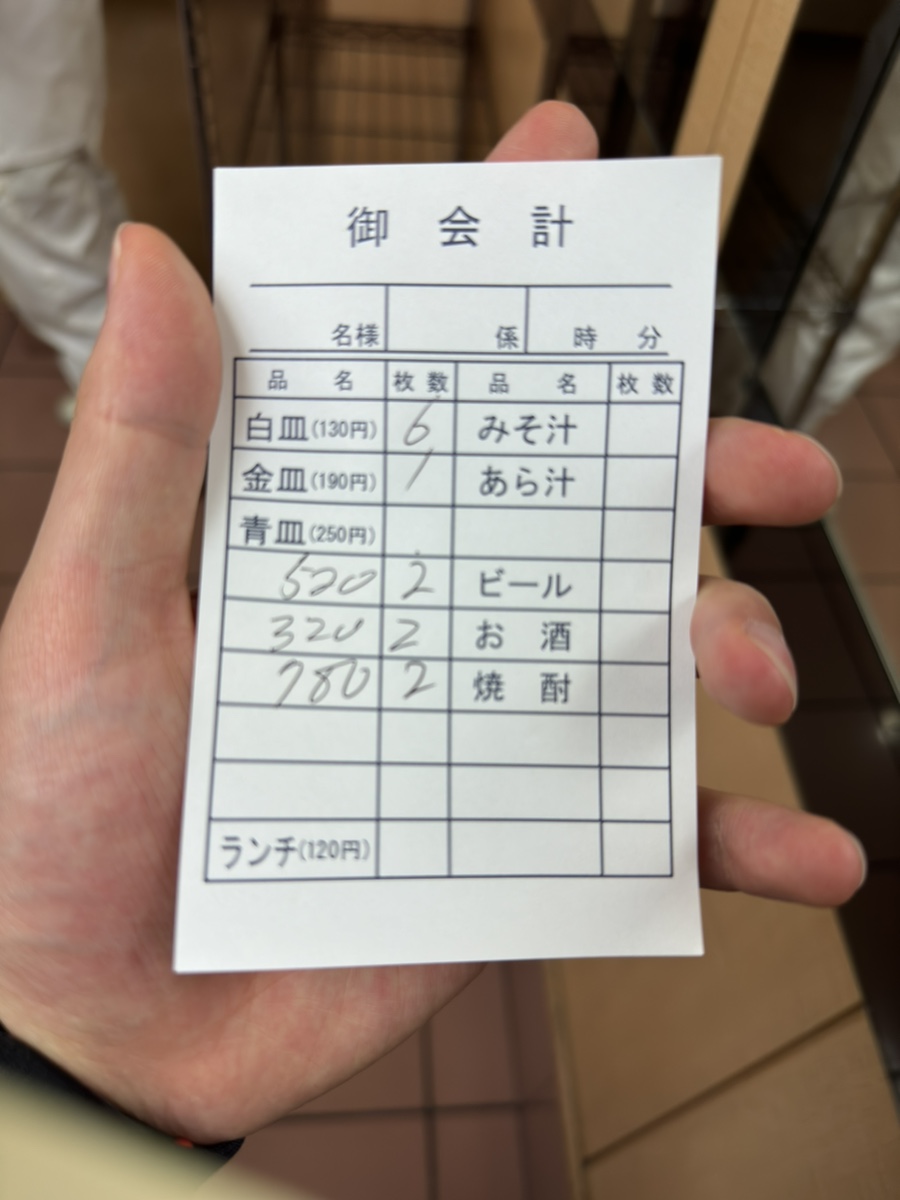 御会計
名様 係 時 分
品名 枚数 品名 枚数
白皿(130円) 6 みそ汁
金皿(190円) 1 あら汁
青皿(250円)
520 2 ビール
320 2 お酒
780 2 焼酎
ランチ(120円)